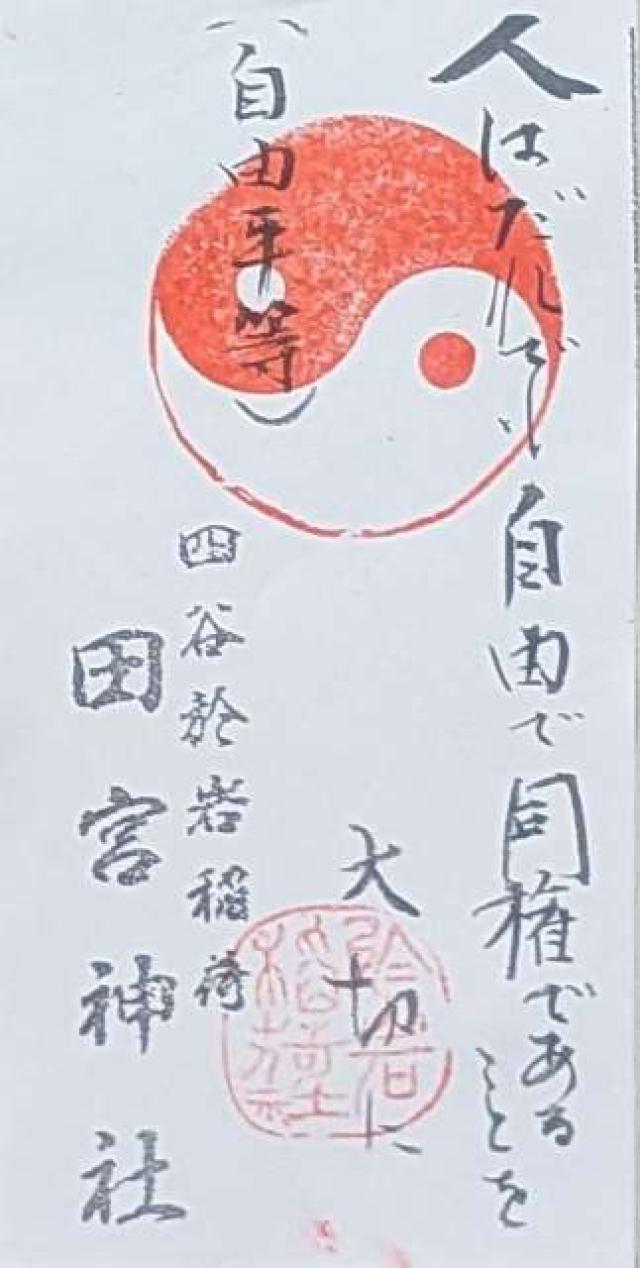 人はだれでも自由で同権である
ことを
大切に
(自由平等)
四谷於岩稲荷
田宮神社